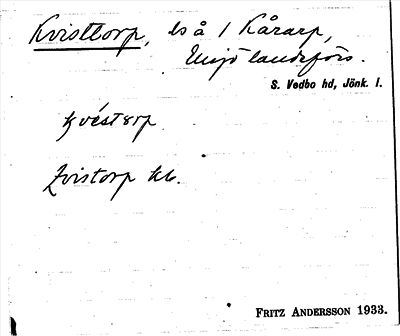 Kvisttorp, ls å 1 Kårarp,
landsförs.
S. Vedbo hd, Jönk. l.
kvistorp kb.
FRITZ ANDERSSON 1933.